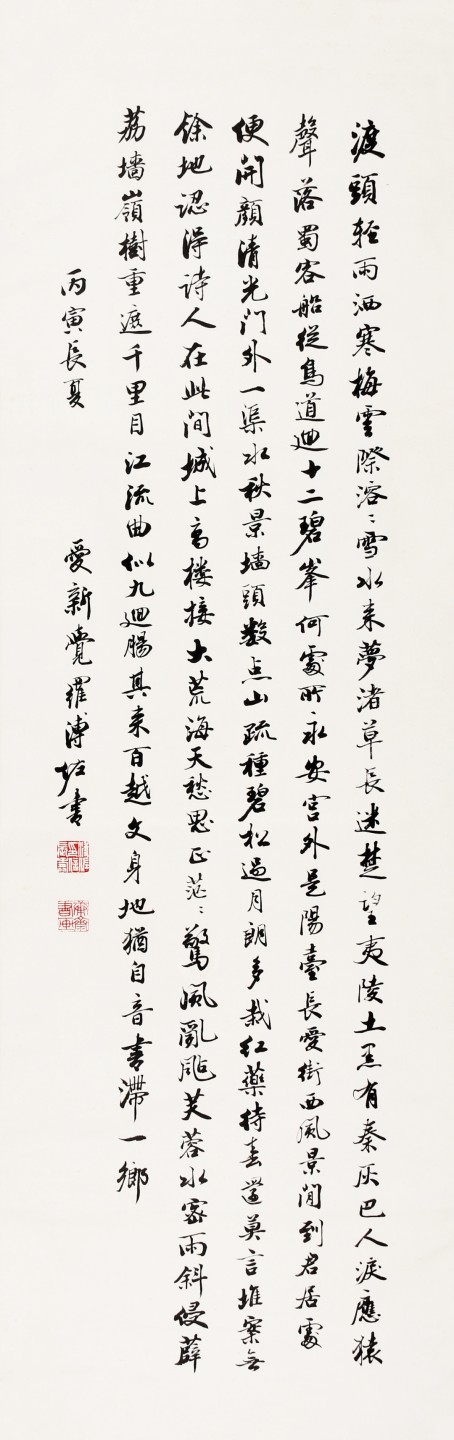 渡頭軽雨洒寒梅雲際溶〻雪水来夢渚草長迷楚望夷陵土黒有秦灰巴人淚應猿
聲落蜀客船從鳥道廻十二碧峯何處所永安宮外是陽臺長愛街西風景閒到君居處
便開顔清光門外一渠水秋景墙頭数点山疏種碧松過月朗多栽红藥待春還莫言堆案無
馀地認得诗人在此間城上高楼接大荒海天愁思正茫〻驚風亂颭芙蓉水密雨斜侵薜
荔墙嶺樹重遮千里目江流曲似九廻腸共来百越文身地猶自音書滯一鄉
丙寅長夏
愛新覺羅溥佐書